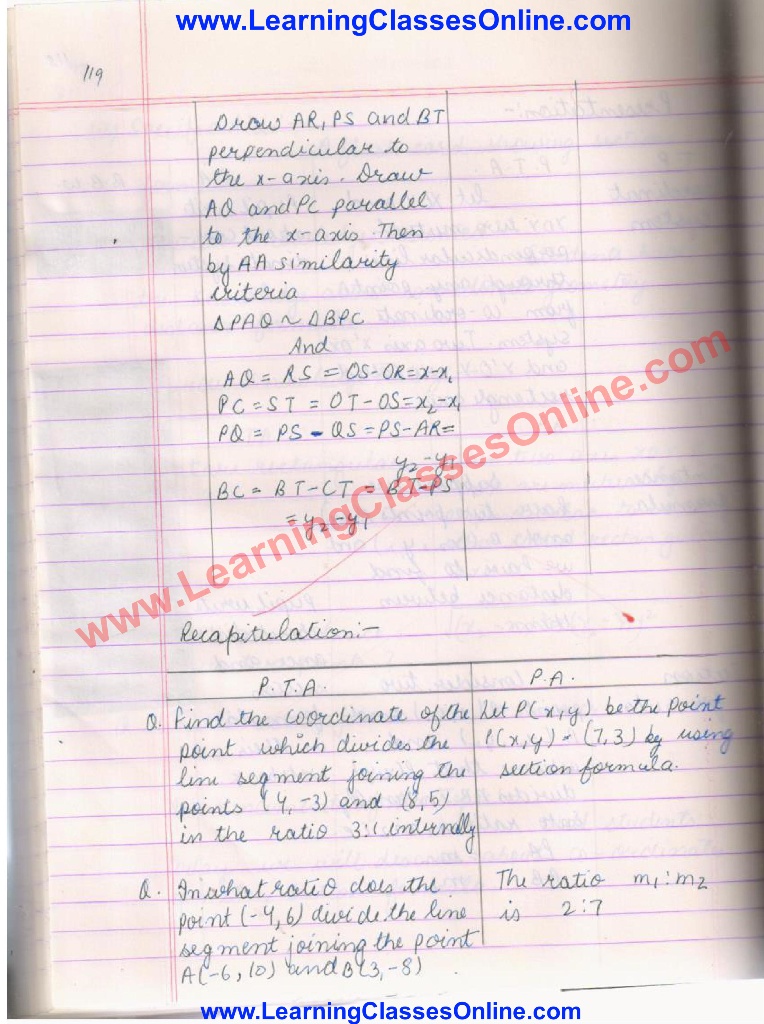 www.LearningClassesOnline.com
119
Draw AR, PS and BT
perpendicular to
the x-axis. Draw
AQ and PC parallel
to the x-axis. Then
by AA similarity
criteria
ΔPAQ ~ ΔBPC
And
AQ = RS = OS-OR = x-x₁
PC = ST = OT-OS = x₂-x₁
PQ = PS - QS = PS-AR =
y₂-y₁
BC = BT-CT = BT-PS
= y₂-y₁
www.LearningClassesOnline.com
Recapitulation:-
P.T.A. P.A.
Q. Find the coordinate of the
point which divides the
line segment joining the
points (4, -3) and (8,5)
in the ratio 3:1 internally
Let P(x,y) be the point
P(x,y) = (7,3) by using
section formula.
Q. In what ratio does the
point (-4,6) divide the line
segment joining the point
A(-6, 10) and B(3,-8)
The ratio m₁:m₂
is 2:7
www.LearningClassesOnline.com